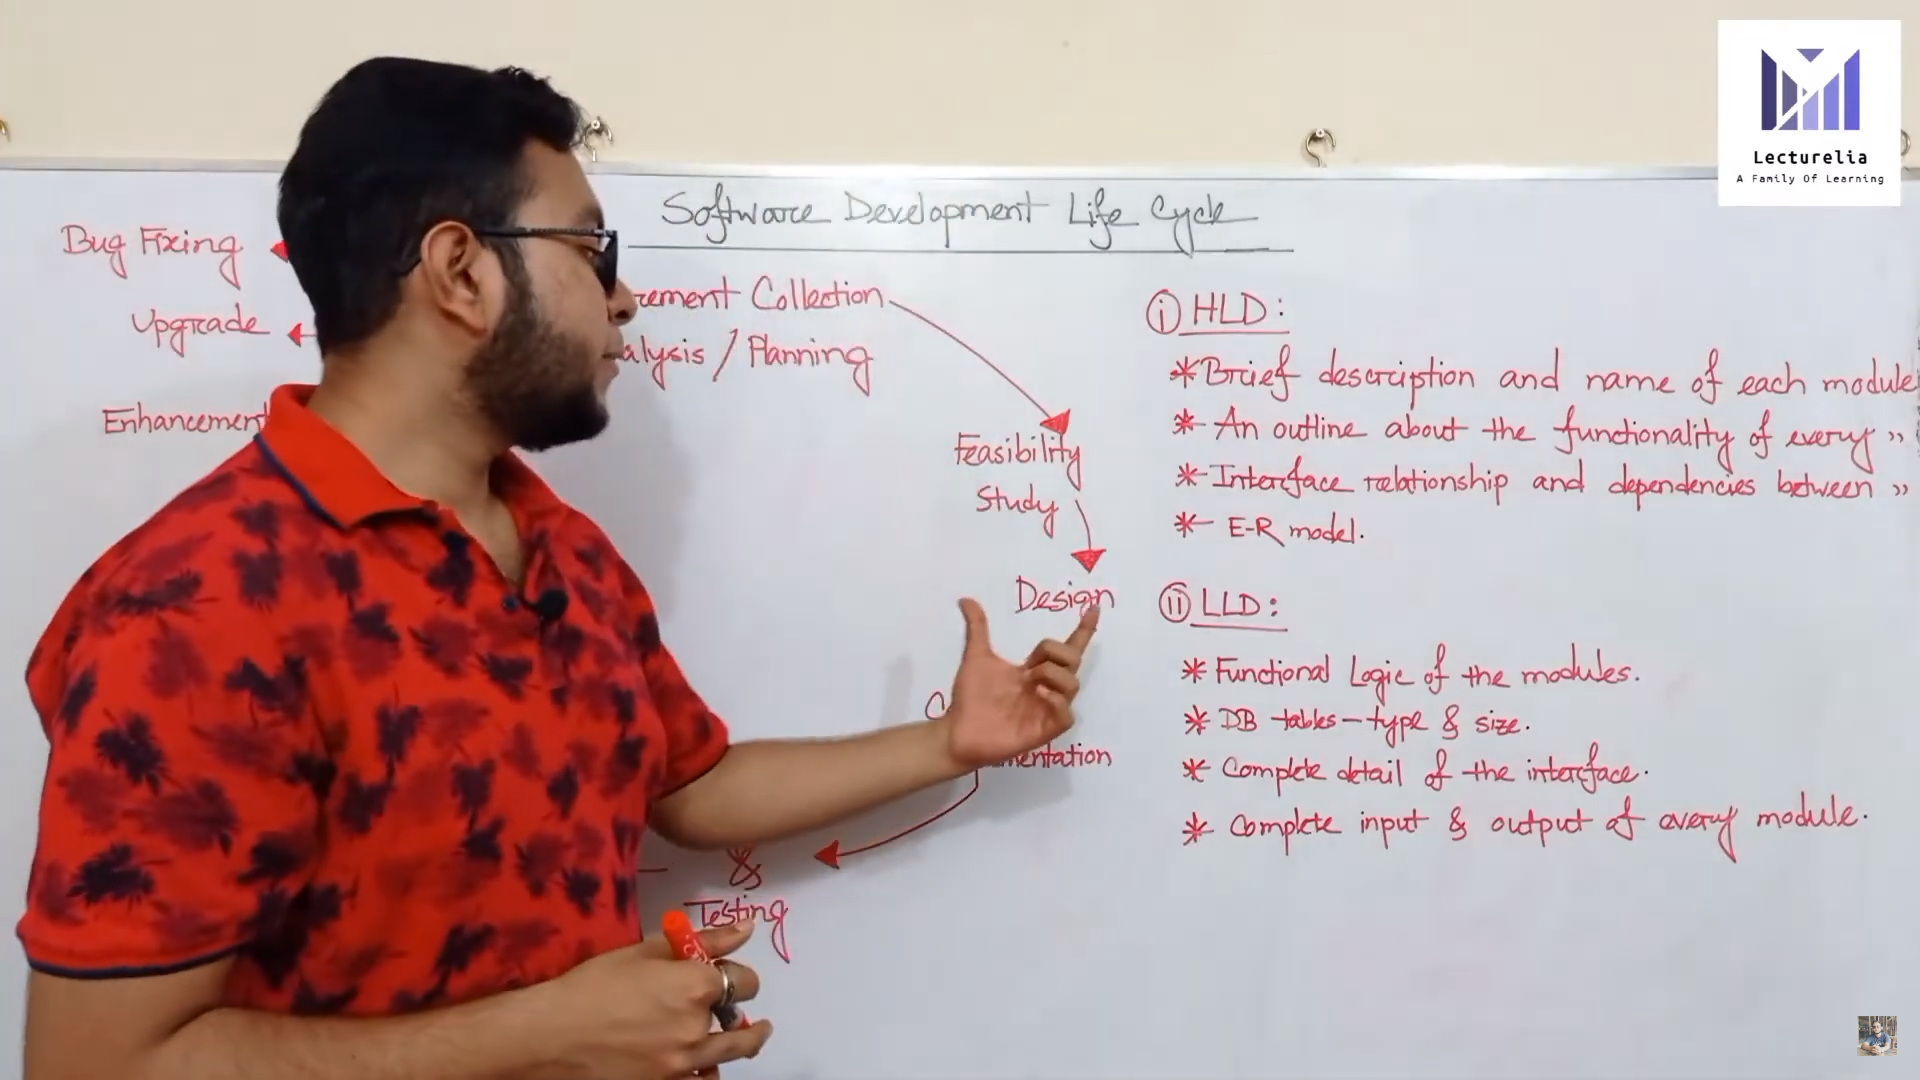 Lecturelia
A Family Of Learning
Software Development Life Cycle
Bug Fixing
Upgrade
Enhancement
Collection
/ Planning
Feasibility
Study
Design
&
Testing
i HLD:
* Brief description and name of each module
* An outline about the functionality of every "
* Interface relationship and dependencies between "
* E-R model.
ii LLD:
* Functional Logic of the modules.
* DB tables - type & size.
* Complete detail of the interface.
* Complete input & output of every module.